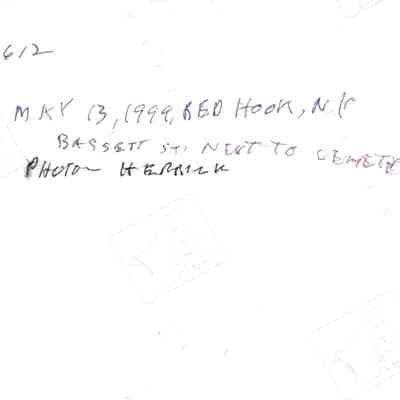 612
MAY 13, 1999, RED HOOK, N.Y.
BASSETT ST. NEXT TO CEMETE
PHOTO - HERRICK